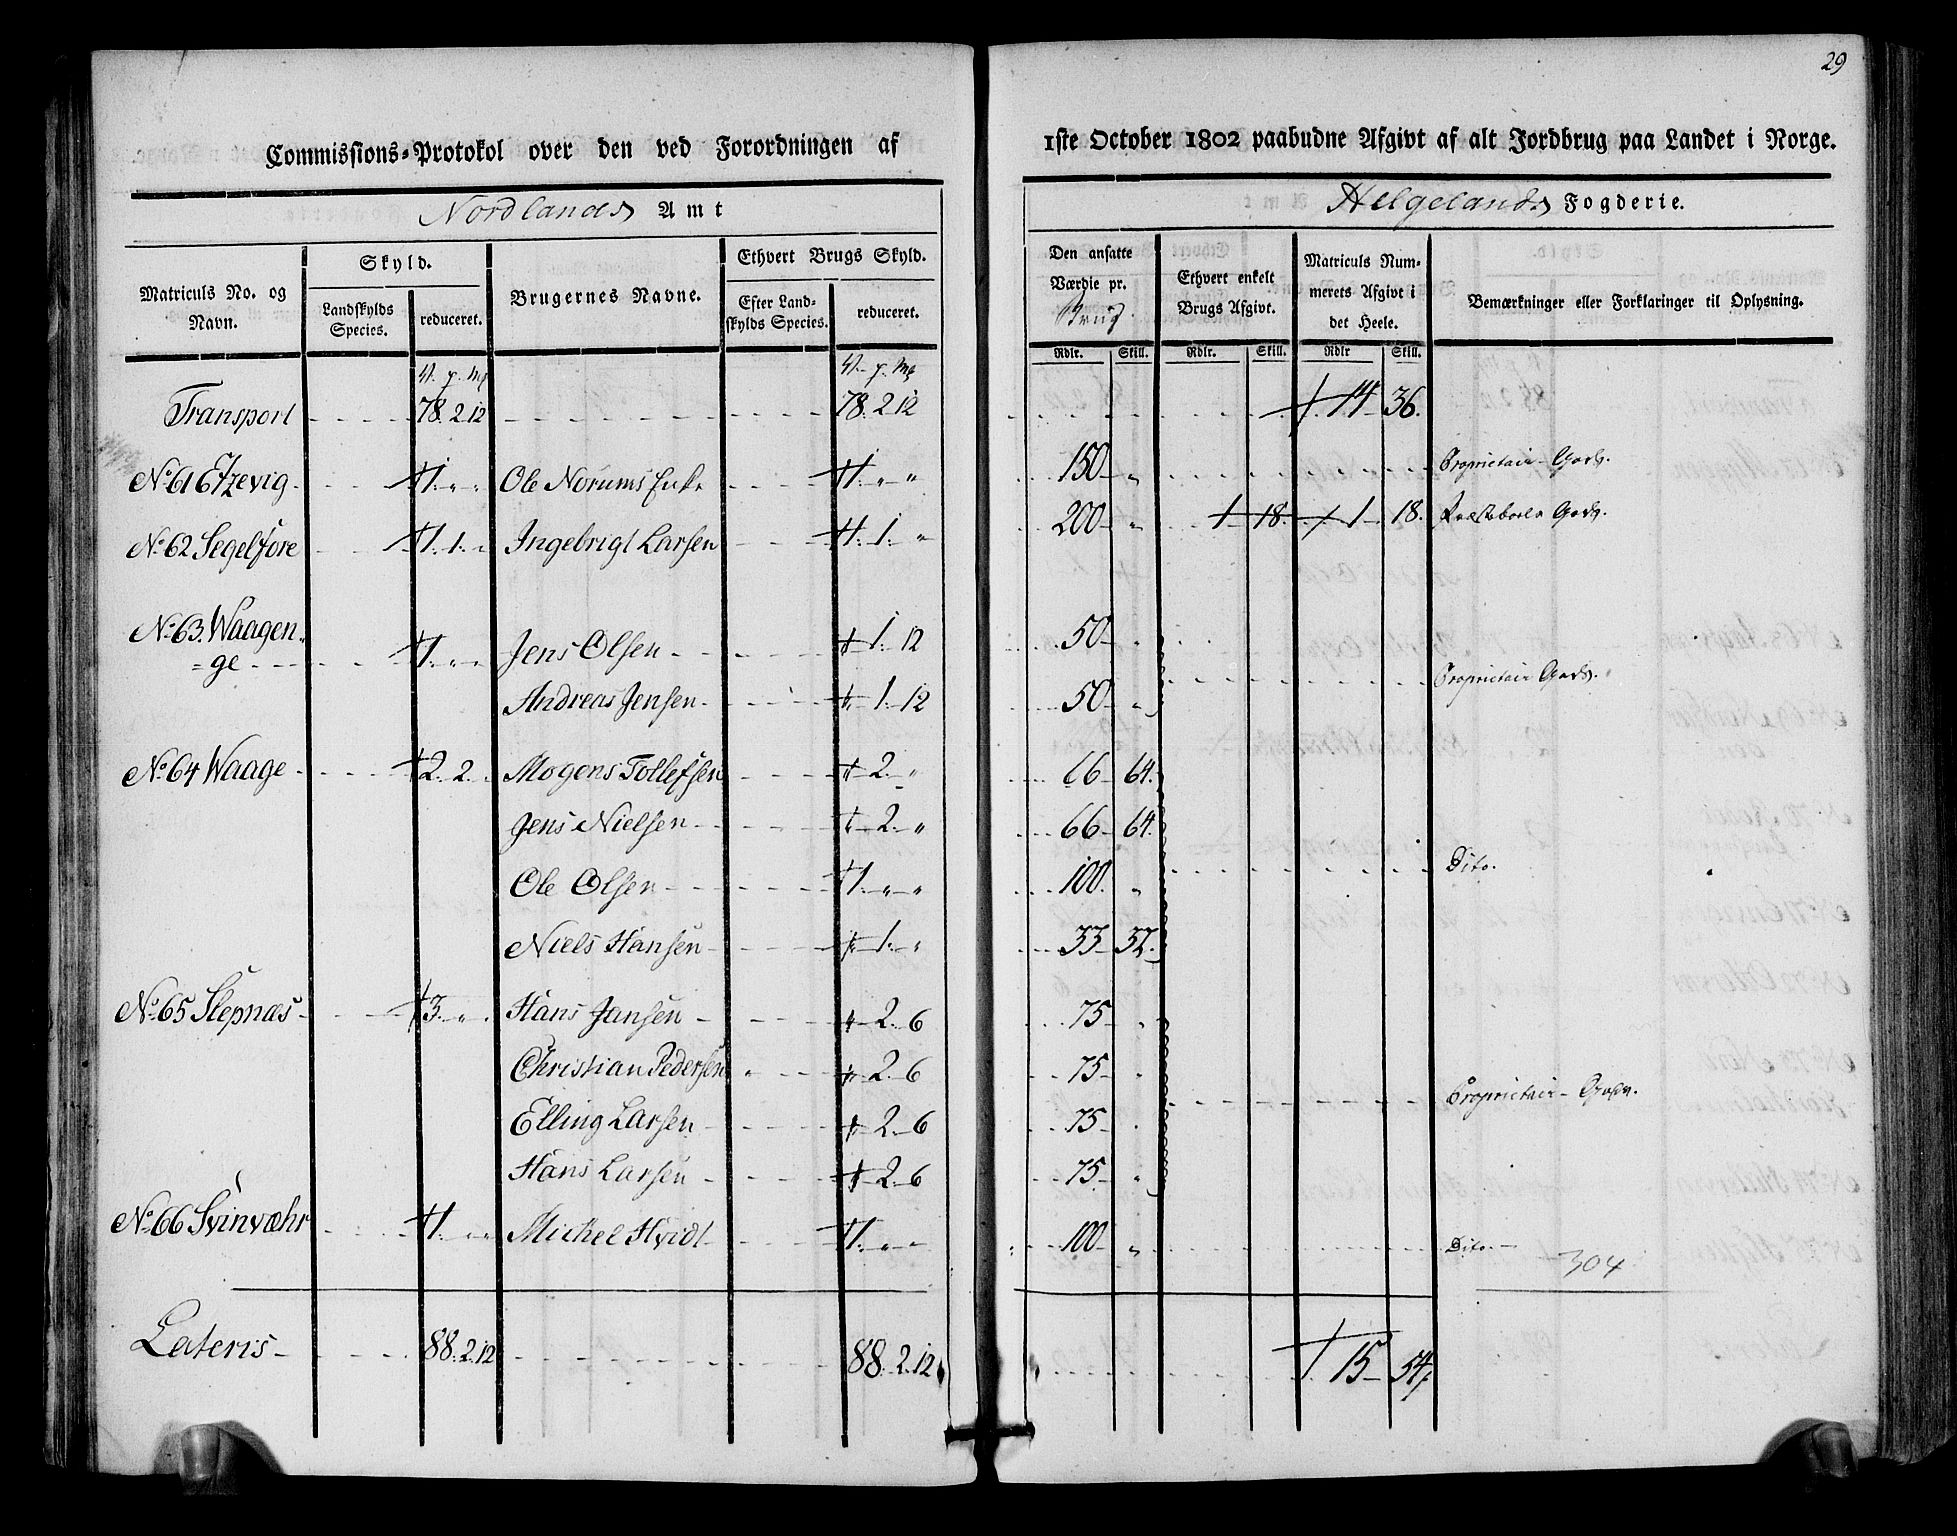 29
Commissions-Protokol over den ved Forordningen af
1ste October 1802 paabudne Afgivt af alt Jordbrug paa Landet i Norge.
Nordlands Amt
Helgelands Fogderie.
Matriculs No. og Navn.
Skyld.
Landskylds Species.
reduceret.
Brugernes Navne.
Ethvert Brugs Skyld.
Efter Landskylds Species.
reduceret.
Den ansatte Værdie pr. Brug
Ethvert enkelt Brugs Afgivt.
Matriculs Nummerets Afgivt i det Heele.
Bemærkninger eller Forklaringer til Oplysning.
Rdlr. Skill. Rdlr. Skill. Rdlr Skill.
V. p. Mk V. p. Mk
Transport 78. 2. 12 78. 2. 12 14 36.
No. 61 Etzevig 1. " " Ole Norums Enke 1. " " 150 " Proprietair Gods.
No. 62 Segelføre 1. 1. " Ingebrigt Larsen 1. 1. " 200 " 1 18. 1 18. Præstebols Gods.
No. 63. Waagen=
=ge 1. " " Jens Olsen 1. 12 50 "
Andreas Jensen 1. 12 50 " Proprietair Gods.
No. 64 Waage 2. 2. " Mogens Tollefsen 2. " 66 64.
Jens Nielsen 2. " 66 64.
Ole Olsen 1. " " 100. " Dito.
Niels Hansen 1. " 33 32.
No. 65 Slepnæs 3. " " Hans Jansen 2. 6 75 "
Christian Pedersen 2. 6 75 "
Elling Larsen 2. 6 75 " Proprietair Gods.
Hans Larsen 2. 6 75 "
No. 66 Svinvæhr 1. " " Michel Hvidt 1. " " 100 " Dito.
304
Lateris 88. 2. 12 88. 2. 12 15 54